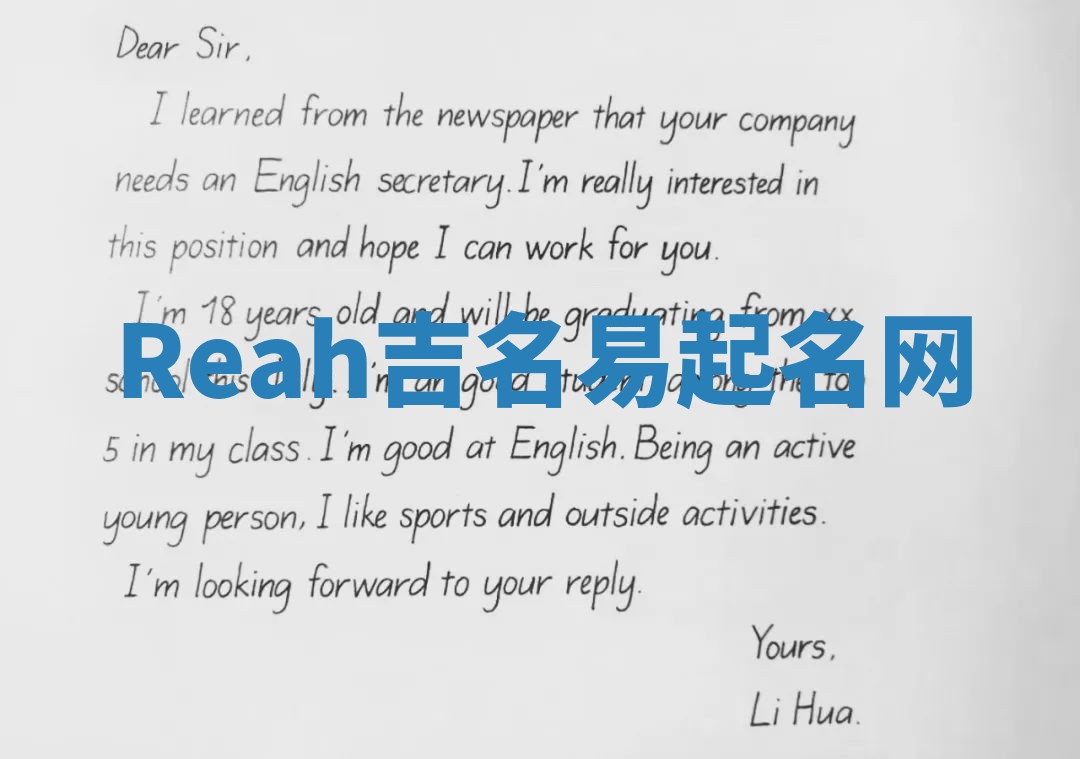 Dear Sir,
I learned from the newspaper that your company
needs an English secretary. I'm really interested in
this position and hope I can work for you.
I'm 18 years old and will be graduating from xx
Reah吉名易起名网
school this July. I'm an good student among the top
5 in my class. I'm good at English. Being an active
young person, I like sports and outside activities.
I'm looking forward to your reply.
Yours,
Li Hua.